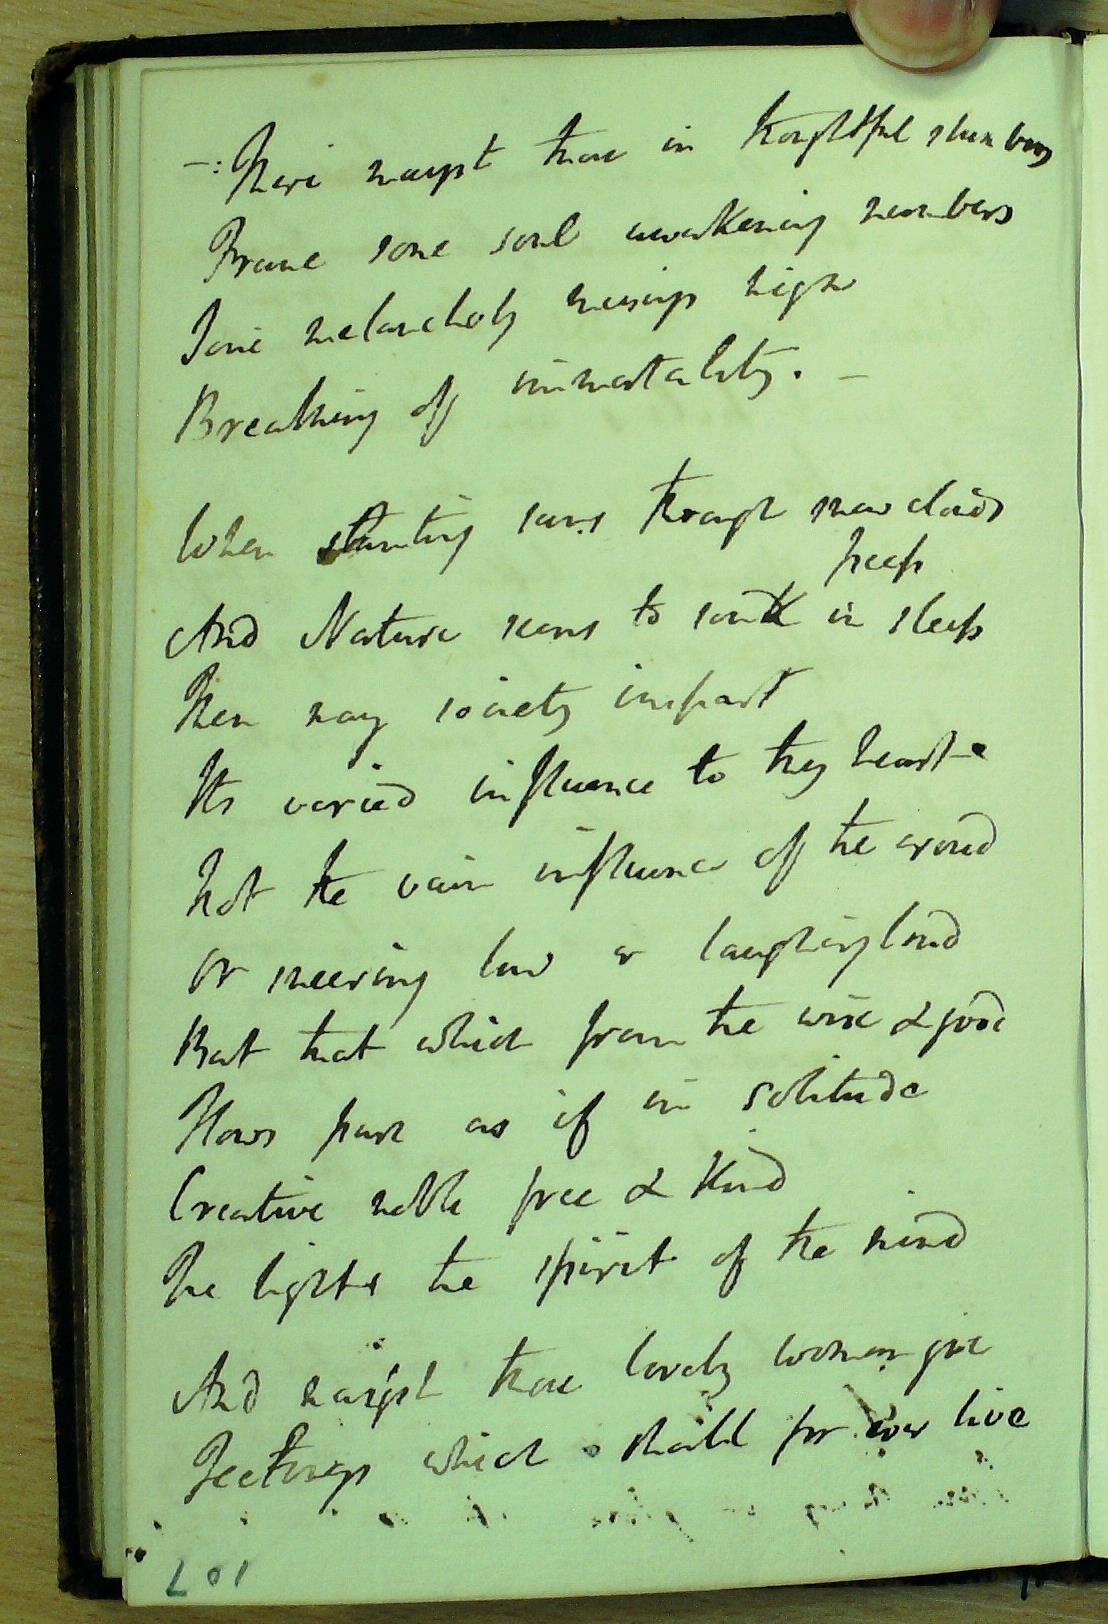 -: There mayst thou in thoughtful slumbers
Frame some soul awakening numbers
Some melancholy musings high
Breathing of immortality. —
When slanting suns through snow clouds
peep
And Nature seems to sink in sleep
Then may society impart
Its varied influence to thy heart
Not the vain influence of the crowd
Or sneering low or laughing loud
But that which from the wise & good
Flows pure as if in solitude
Creative noble free & Kind
The lights the spirit of the mind
And mayst thou lovely woman give
Feelings which should for ever live